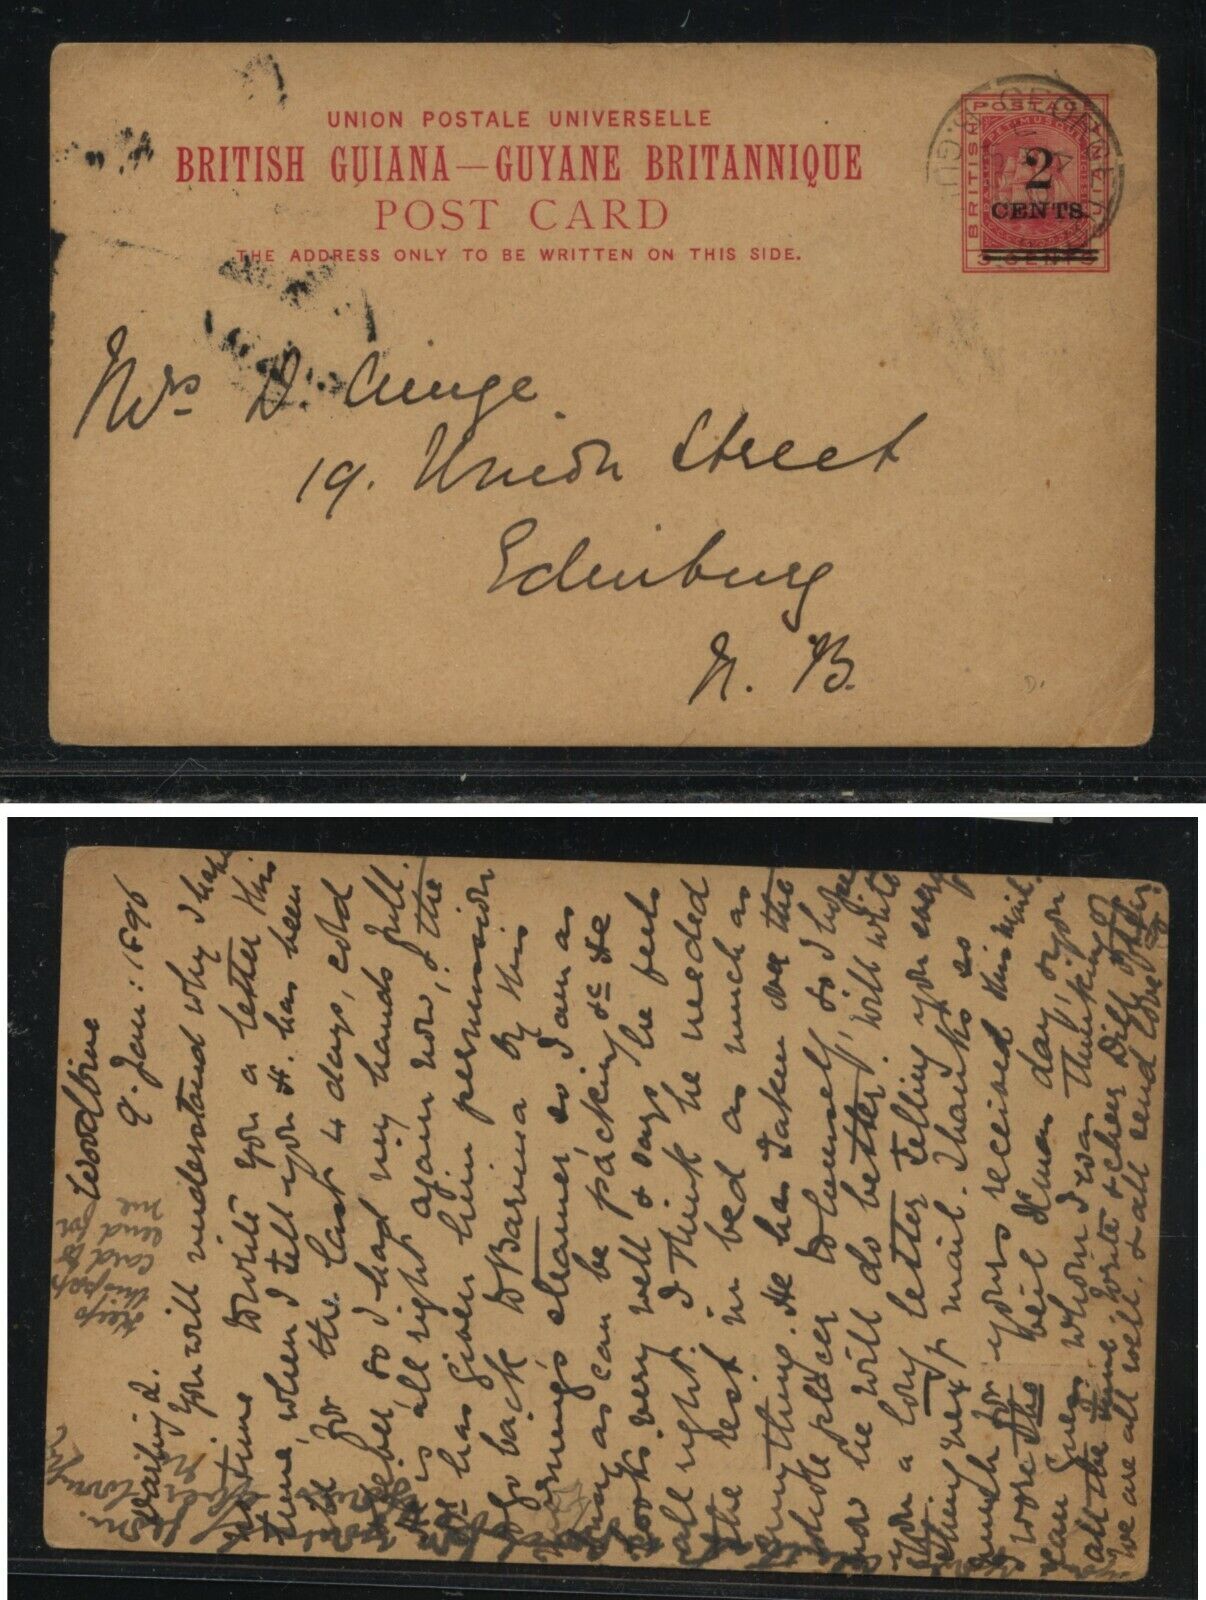 UNION POSTALE UNIVERSELLE
BRITISH GUIANA — GUYANE BRITANNIQUE
POST CARD
THE ADDRESS ONLY TO BE WRITTEN ON THIS SIDE.
POSTAGE
BRITISH
GUIANA
2
CENTS.
3 CENTS
Mrs D.
19. Union Street
Edinburg
N. B.
Woodbine
9. Jan: 1896
Keep
this
card to
send for
me
You will understand why I have
time to write you a letter this
time, when I tell you H. has been
ill for the last 4 days, cold
& fever so I had my hands full.
He is all right again now, & the
Dr has given him permission
to go back to Barima by this
evening's steamer, so I am as
busy as can be packing &c He
looks very well & says he feels
all right. I think he needed
the rest in bed as much as
anything. He has taken over the
whole place to himself, so I hope
now he will do better; will write
you a long letter telling you every
thing next mail. Thanks so
much for yours received this mail.
I wore the veil Xmas day, & you
can guess whom I was thinking of
all the time. Write & cheer
we are all well, & all send love